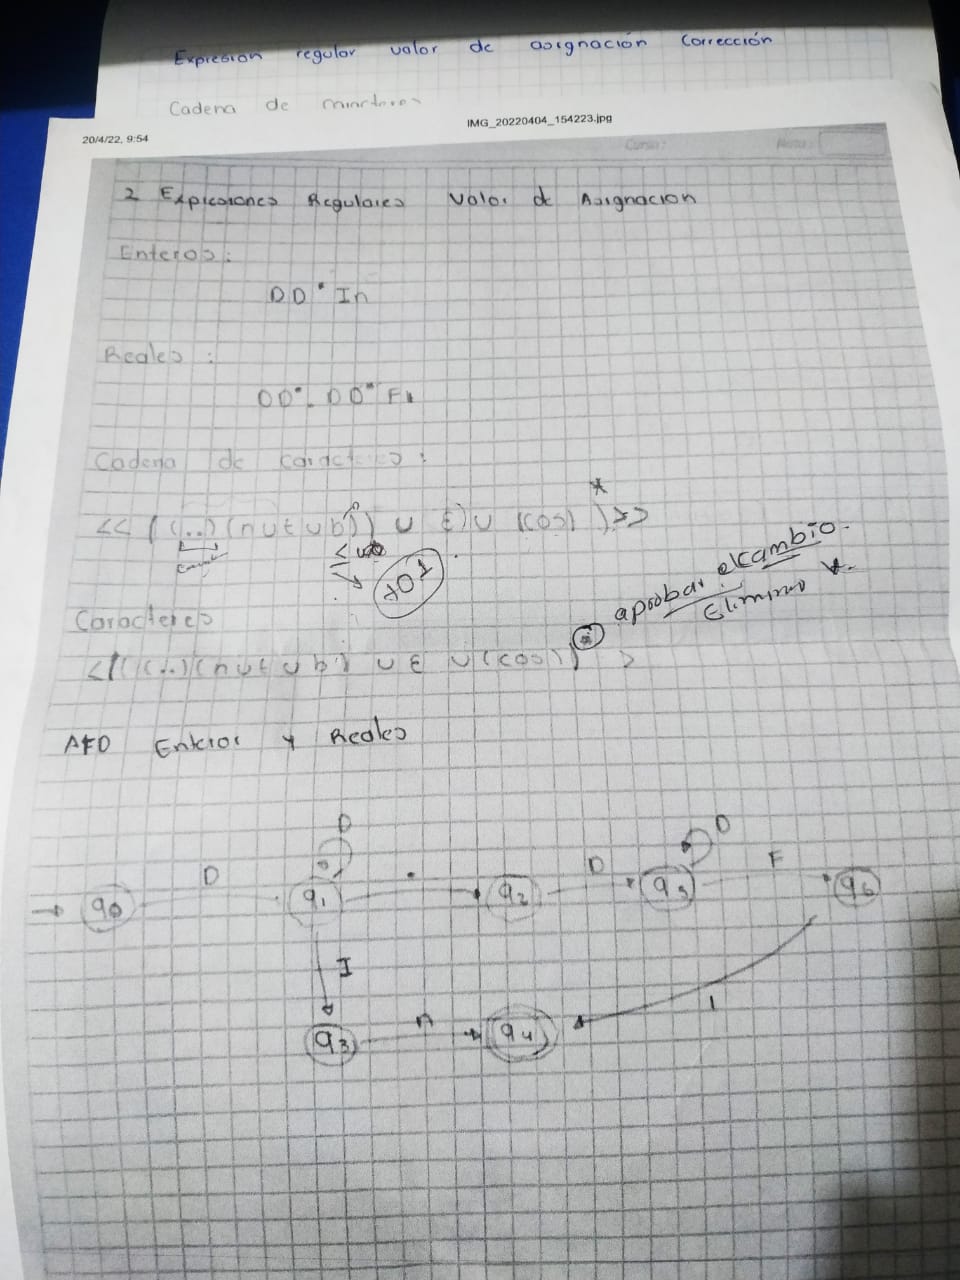 Expresion regular valor de asignación Corrección
Cadena de
20/4/22, 9:54
IMG_20220404_154223.jpg
Curso:
2 Expresiones Regulares Valor de Asignacion
Enteros:
DD* In
Reales:
DD*. DD* Fl
Cadena de caracteres:
<< ( (...) (n u t u b) ) U E) U (cos) )* >>
Caracteres
< ( ( (...) (n u t u b) U E U (cos) ) * >
aprobar el cambio.
Elimino
AFD Enteros y Reales
D
D
D
D
F
q0
q1
.
q2
q5
q6
I
n
l
q3
q4